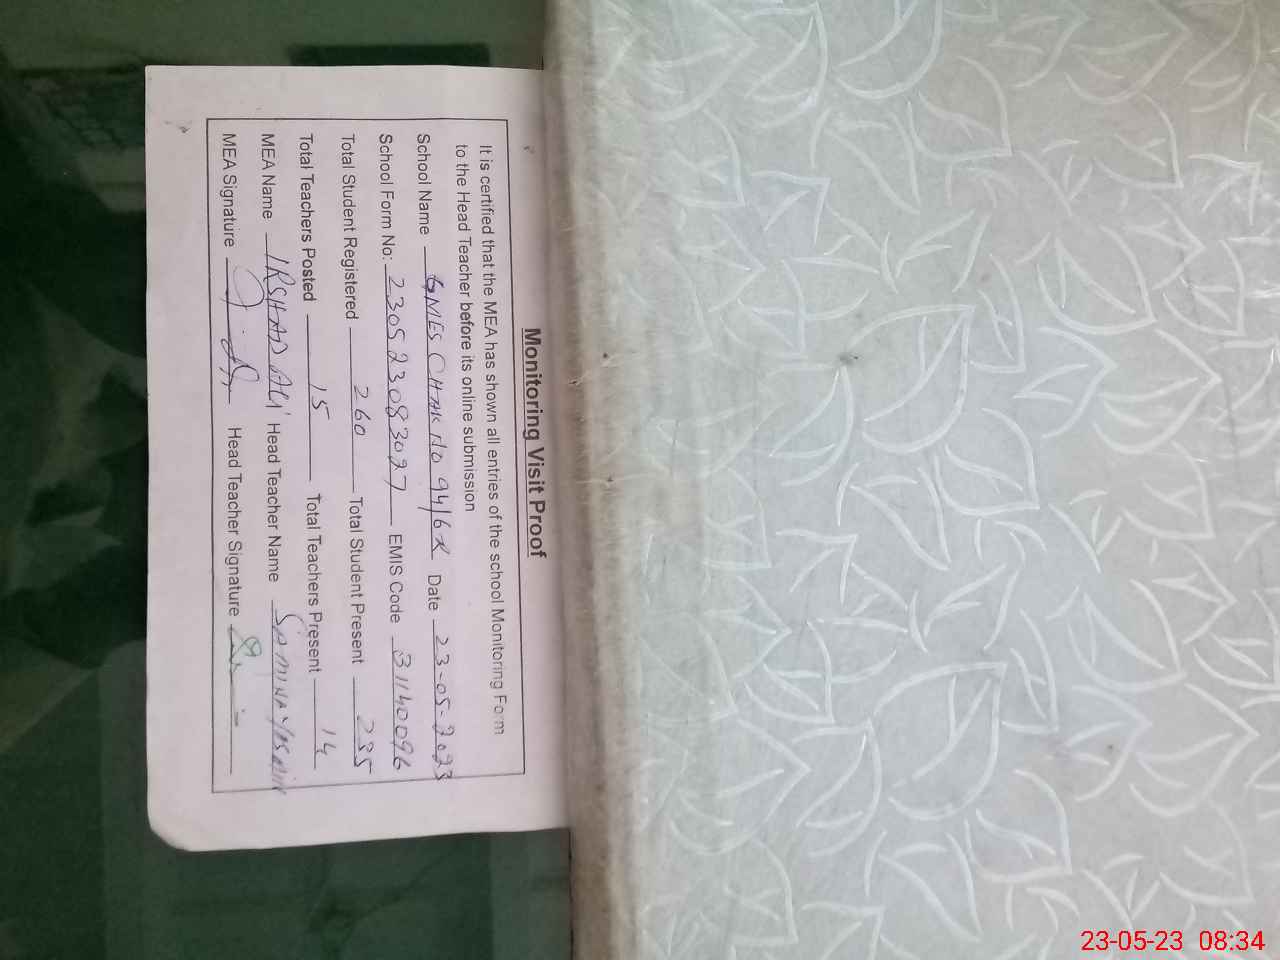 Monitoring Visit Proof
It is certified that the MEA has shown all entries of the school Monitoring Form
to the Head Teacher before its online submission
School Name GMES CHAK NO 94/6R Date 23-05-2023
School Form No: 230523083027 EMIS Code 31140096
Total Student Registered 260 Total Student Present 235
Total Teachers Posted 15 Total Teachers Present 14
MEA Name IRSHAD ALI Head Teacher Name SAMINA YASMIN
MEA Signature Head Teacher Signature
23-05-23 08:34